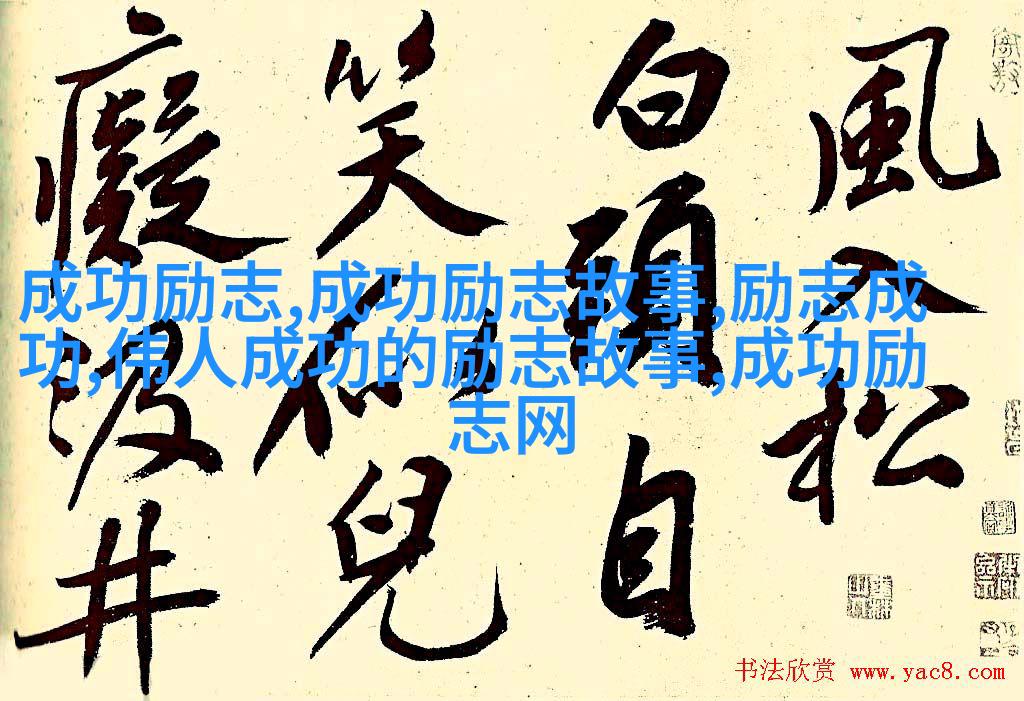 風入松
白頭自
笑似兒
癡汲井
成功励志,成功励志故事,励志成
功,伟人成功的励志故事,成功励
志网
书法欣赏 www.yac8.com